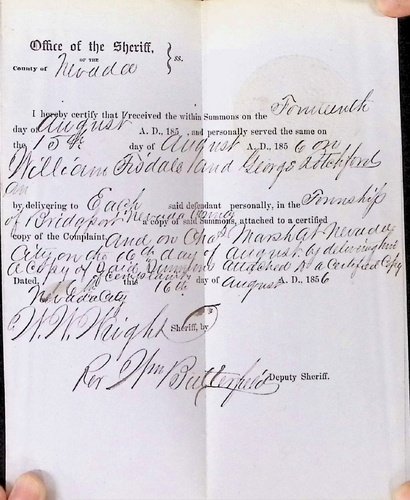 Office of the Sheriff,
OF THE
County of Nevada ss.
I hereby certify that I received the within Summons on the Fourteenth
day of August A. D., 185 , and personally served the same on
the 15th day of August A. D., 185 6 on
William Tisdale and George
by delivering to Each said defendant personally, in the Township
of Bridgeport Nevada County a copy of said Summons, attached to a certified
copy of the Complaint, and on Chas Marsh at Nevada
City on the 16th day of August by delivering him
a Copy of said Summons attached to a Certified Copy
of Complaint
Dated, this 16th day of August A. D., 1856
Nevada City
W. W. Wright Sheriff, by
Per Wm Butterfield Deputy Sheriff.